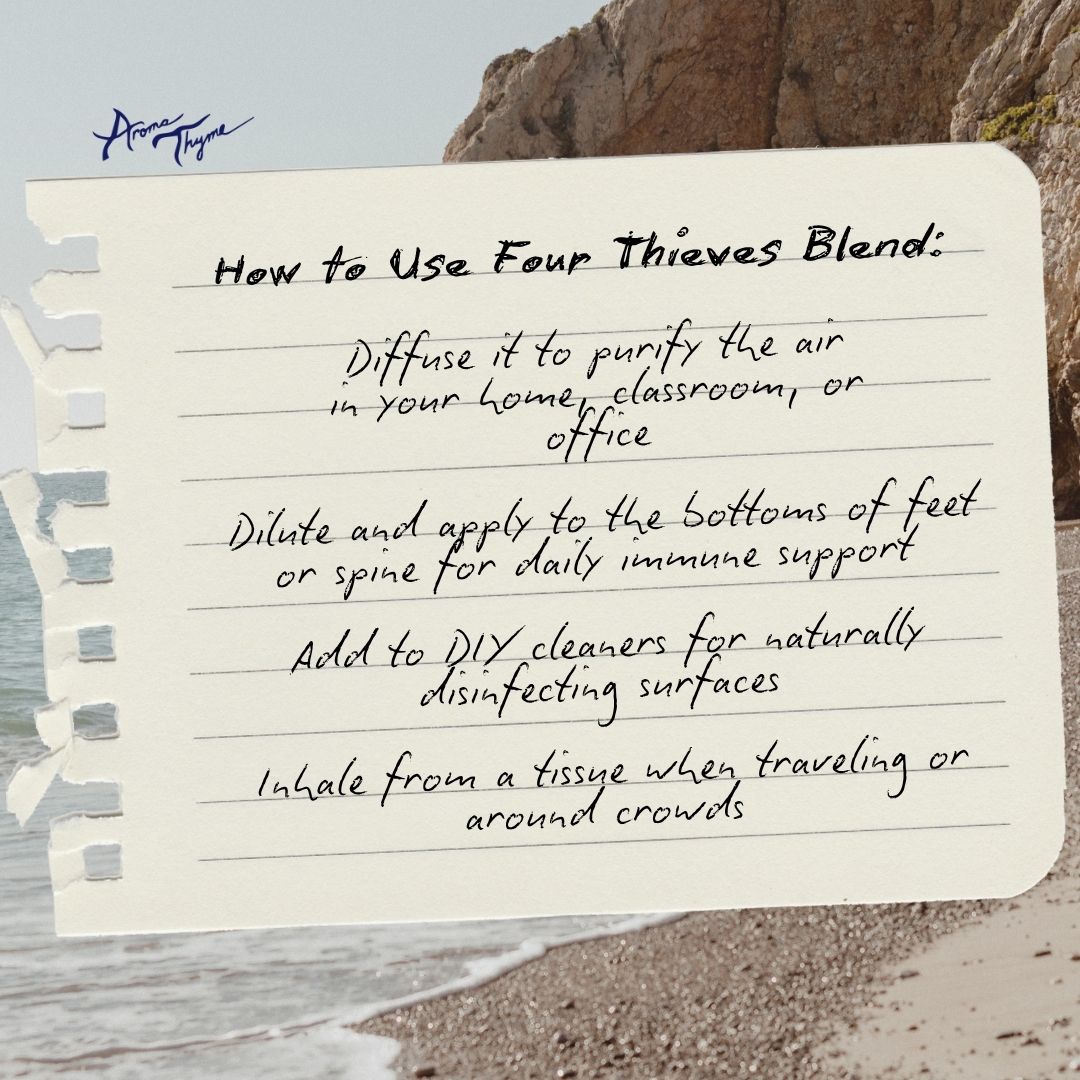 Aroma
Thyme
How to Use Four Thieves Blend:
Diffuse it to purify the air
in your home, classroom, or
office
Dilute and apply to the bottoms of feet
or spine for daily immune support
Add to DIY cleaners for naturally
disinfecting surfaces
Inhale from a tissue when traveling or
around crowds